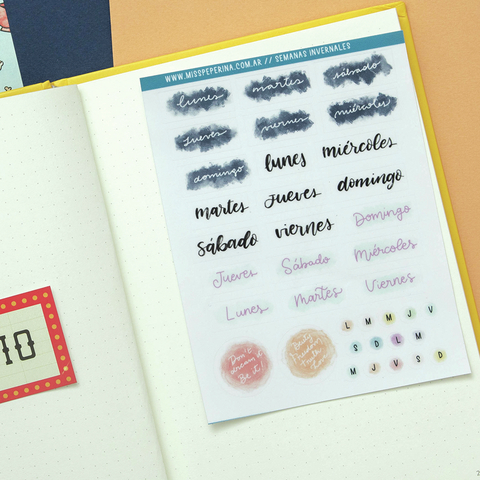 WWW.MISSPEPERINA.COM.AR // SEMANAS INVERNALES
lunes martes sábado
jueves viernes miércoles
domingo lunes miércoles
martes jueves domingo
sábado viernes Domingo
Jueves Sábado Miércoles
Lunes Martes Viernes
L M M J V
S D L M
M J V S D
Don't
dream it
Be it!
IO